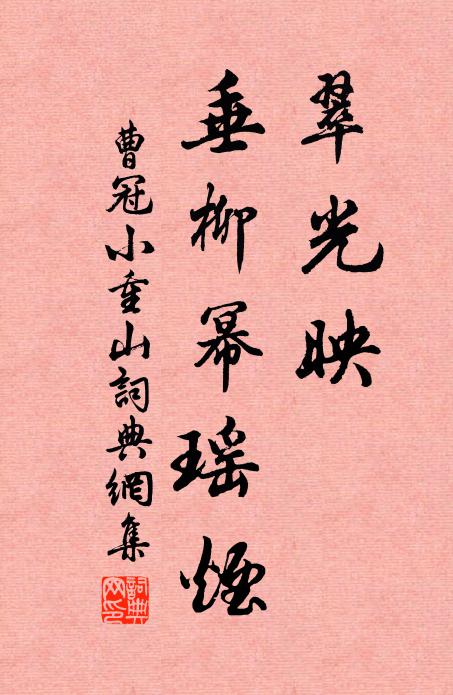 翠光映
垂柳幂瑶煙
曹冠小重山詞典網集
詞典网印